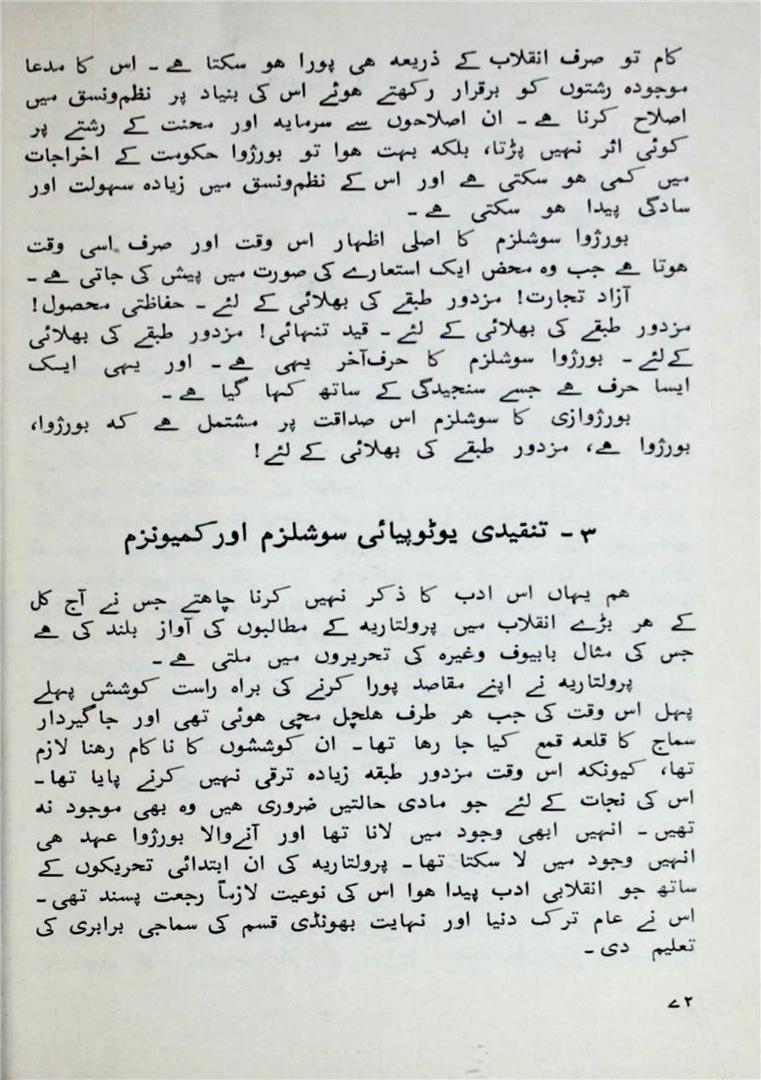 کام تو صرف انقلاب کے ذریعہ ہی پورا ہو سکتا ہے ۔ اس کا مدعا
موجودہ رشتوں کو برقرار رکھتے ہوئے اس کی بنیاد پر نظم‌ونسق میں
اصلاح کرنا ہے ۔ ان اصلاحوں سے سرمایہ اور محنت کے رشتے پر
کوئی اثر نہیں پڑتا، بلکہ بہت ہوا تو بورژوا حکومت کے اخراجات
میں کمی ہو سکتی ہے اور اس کے نظم‌ونسق میں زیادہ سہولت اور
سادگی پیدا ہو سکتی ہے ۔
بورژوا سوشلزم کا اصلی اظہار اس وقت اور صرف اسی وقت
ہوتا ہے جب وہ محض ایک استعارے کی صورت میں پیش کی جاتی ہے ۔
آزاد تجارت! مزدور طبقے کی بھلائی کے لئے ۔ حفاظتی محصول!
مزدور طبقے کی بھلائی کے لئے ۔ قید تنہائی! مزدور طبقے کی بھلائی
کےلئے ۔ بورژوا سوشلزم کا حرف‌آخر یہی ہے ۔ اور یہی ایک
ایسا حرف ہے جسے سنجیدگی کے ساتھ کہا گیا ہے ۔
بورژوازی کا سوشلزم اس صداقت پر مشتمل ہے کہ بورژوا،
بورژوا ہے، مزدور طبقے کی بھلائی کے لئے!
۳ ۔ تنقیدی یوٹوپیائی سوشلزم اور کمیونزم
ہم یہاں اس ادب کا ذکر نہیں کرنا چاہتے جس نے آج کل
کے ہر بڑے انقلاب میں پرولتاریہ کے مطالبوں کی آواز بلند کی ہے
جس کی مثال بابیوف وغیرہ کی تحریروں میں ملتی ہے ۔
پرولتاریہ نے اپنے مقاصد پورا کرنے کی براہ راست کوشش پہلے
پہل اس وقت کی جب ہر طرف ہلچل مچی ہوئی تھی اور جاگیردار
سماج کا قلعہ قمع کیا جا رہا تھا ۔ ان کوششوں کا ناکام رہنا لازم
تھا، کیونکہ اس وقت مزدور طبقہ زیادہ ترقی نہیں کرنے پایا تھا ۔
اس کی نجات کے لئے جو مادی حالتیں ضروری ہیں وہ بھی موجود نہ
تھیں ۔ انہیں ابھی وجود میں لانا تھا اور آنےوالا بورژوا عہد ہی
انہیں وجود میں لا سکتا تھا ۔ پرولتاریہ کی ان ابتدائی تحریکوں کے
ساتھ جو انقلابی ادب پیدا ہوا اس کی نوعیت لازماً رجعت پسند تھی ۔
اس نے عام ترک دنیا اور نہایت بھونڈی قسم کی سماجی برابری کی
تعلیم دی ۔
۷۲